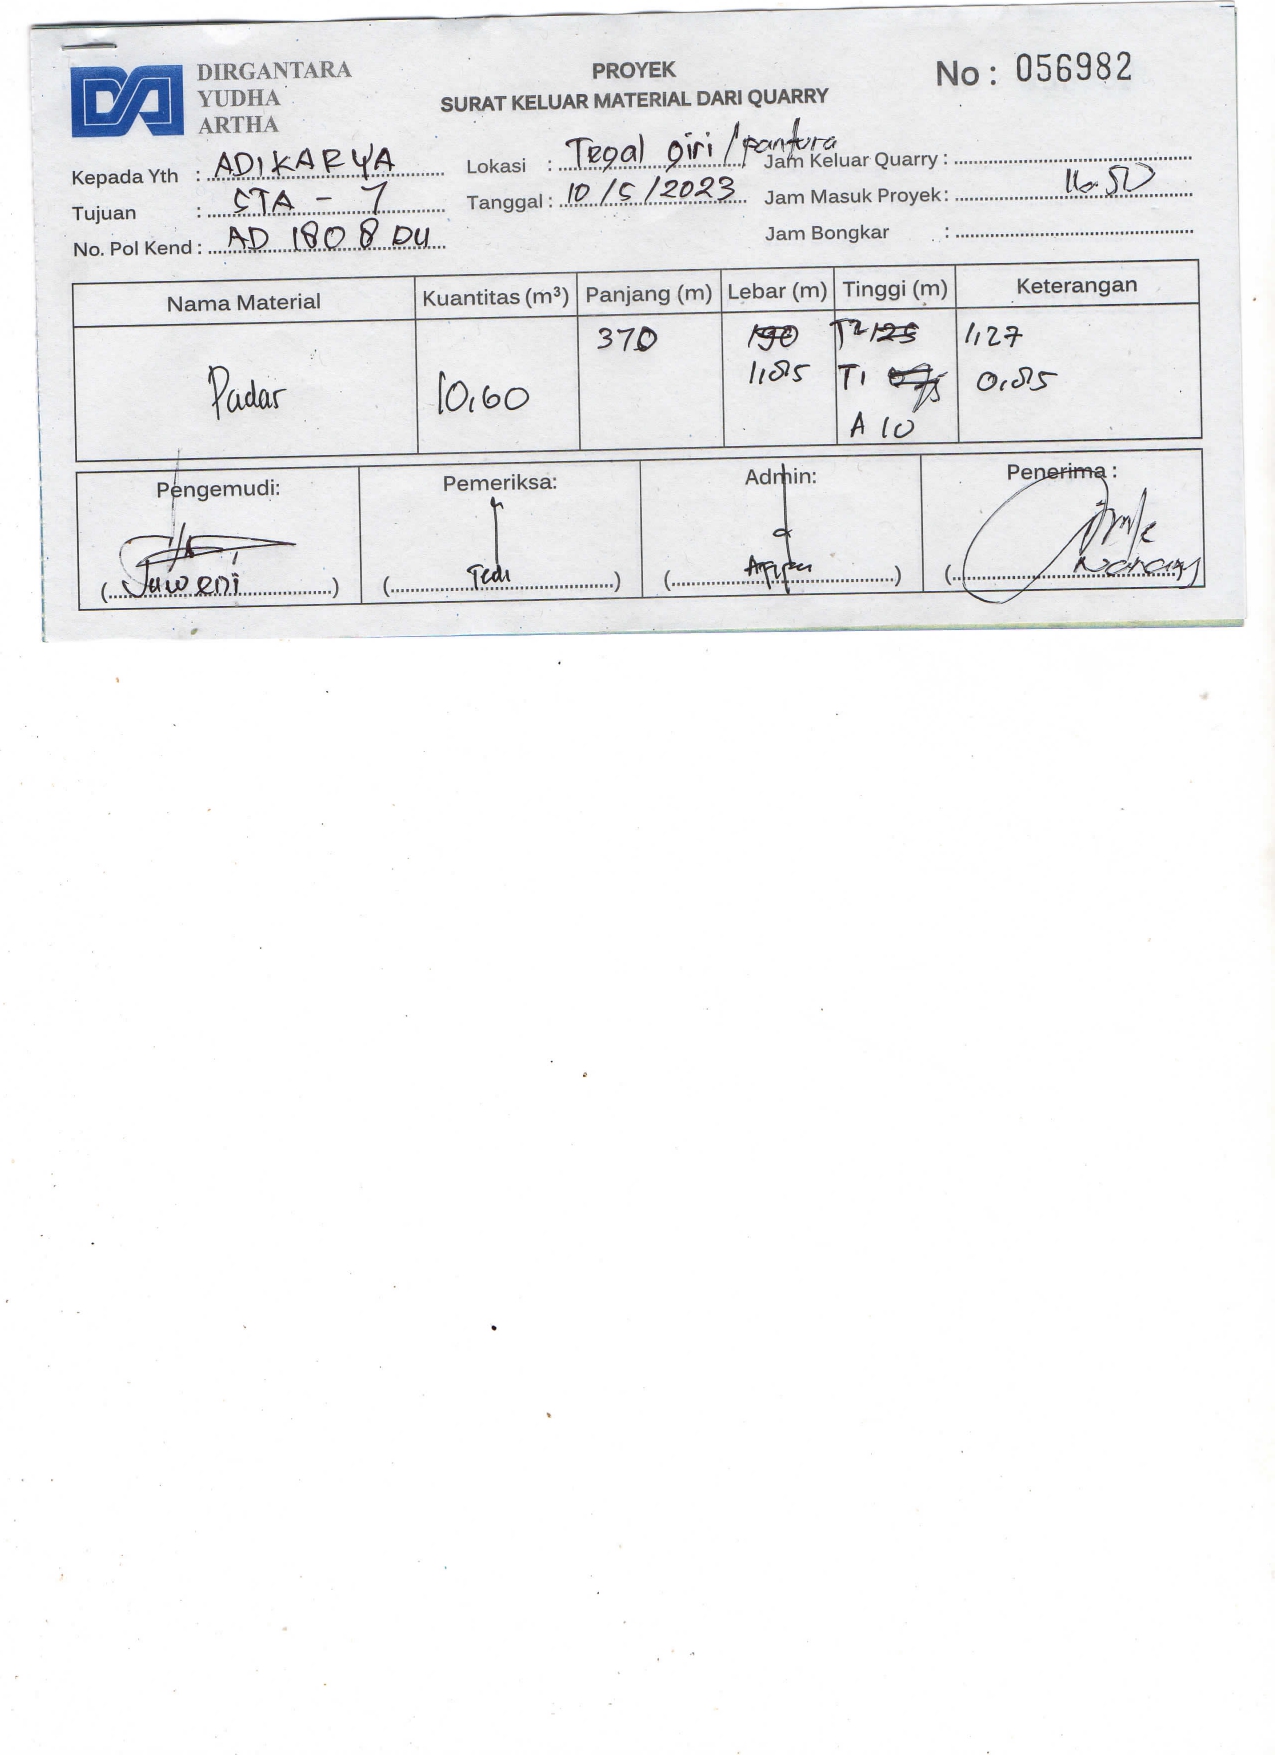 DIRGANTARA
YUDHA
ARTHA
PROYEK
SURAT KELUAR MATERIAL DARI QUARRY
No : 056982
Kepada Yth : ADIKARYA
Tujuan : STA - 7
No. Pol Kend : AD 1808 DU
Lokasi : Tegal giri / pantura
Tanggal : 10/5/2023
Jam Keluar Quarry :
Jam Masuk Proyek : 16.50
Jam Bongkar :
Nama Material Kuantitas (m³) Panjang (m) Lebar (m) Tinggi (m) Keterangan
370 190 T2 125 1,27
Padar 10,60 1,85 T1 0,85
A 10
Pengemudi: Pemeriksa: Admin: Penerima :
(Juweni) (Tedi) ( ) ( )